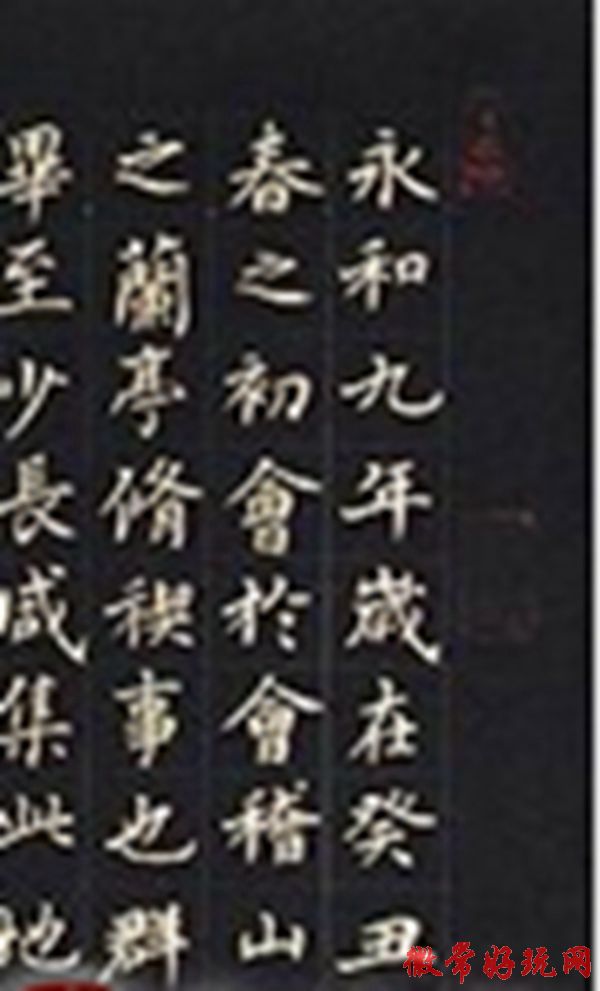 永和九年歲在癸丑
春之初會於會稽山
之蘭亭脩稧事也群
畢至少長咸集此地
徽常好玩网